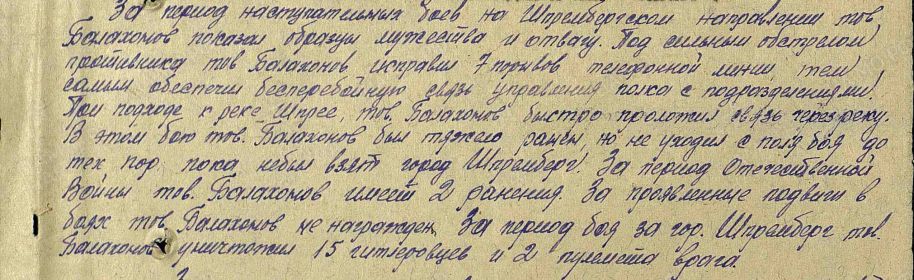 За период наступательных боев на Шпрембергском направлении тов.
Балахонов показал образцы мужества и отвагу. Под сильным обстрелом
противника тов Балахонов исправил 7 порывов телефонной линии, тем
самым обеспечил бесперебойную связь управления полка с подразделениями.
При подходе к реке Шпрее, тов. Балахонов быстро проложил связь через реку.
В этом бою тов. Балахонов был тяжело ранен, но не уходил с поля боя до
тех пор, пока небыл взят город Шпремберг. За период Отечественной
войны тов. Балахонов имеет 2 ранения. За проявленные подвиги в
боях тов. Балахонов не награжден. За период боя за гор. Шпремберг тов.
Балахонов уничтожил 15 гитлеровцев и 2 пулемета врага